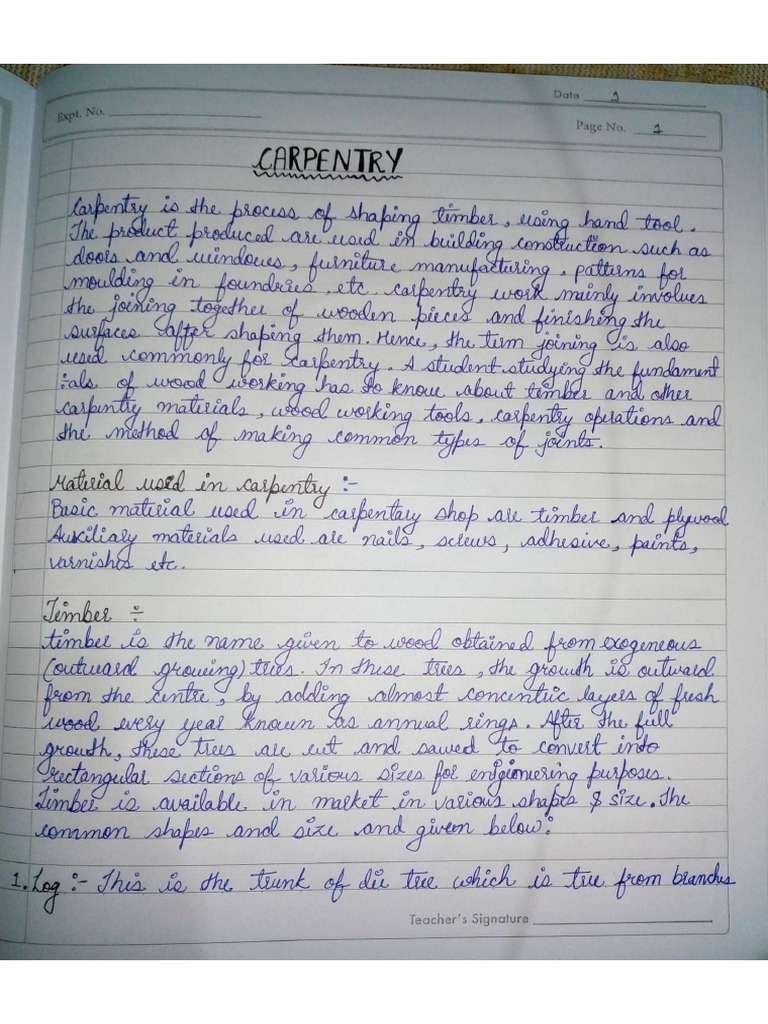 Date 1
Expt. No.
Page No. 1
CARPENTRY
Carpentry is the process of shaping timber, using hand tool.
The product produced are used in building construction such as
doors and windows, furniture manufacturing. patterns for
moulding in foundries, etc. carpentry work mainly involves
the joining together of wooden pieces and finishing the
surfaces after shaping them. Hence, the term joining is also
used commonly for carpentry. A student studying the fundament
:als of wood working has to know about timber and other
carpentry materials, wood working tools, carpentry operations and
the method of making common types of joints.
Material used in carpentry :-
Basic material used in carpentary shop are timber and plywood
Auxiliary materials used are nails, screws, adhesive, paints,
varnishes etc.
Timber ÷
timber is the name given to wood obtained from exogeneous
(outward growing) trees. In these trees, the growth is outward
from the centre, by adding almost concentric layers of fresh
wood every year known as annual rings. After the full
growth, these trees are cut and sawed to convert into
rectangular sections of various sizes for engionering purposes.
Timber is available in market in various shapes & size. The
common shapes and size and given below:
1. Log :- This is the trunk of die tree which is true from branches
Teacher's Signature